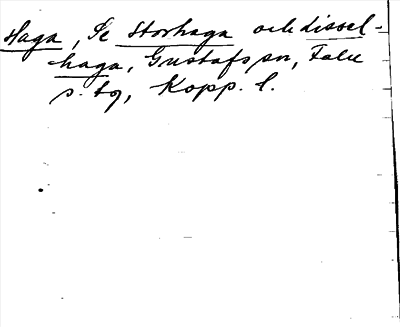 Haga, Se Storhaga och Lissel-
haga, Gustafs sn, Falu
s. tg, Kopp. l.